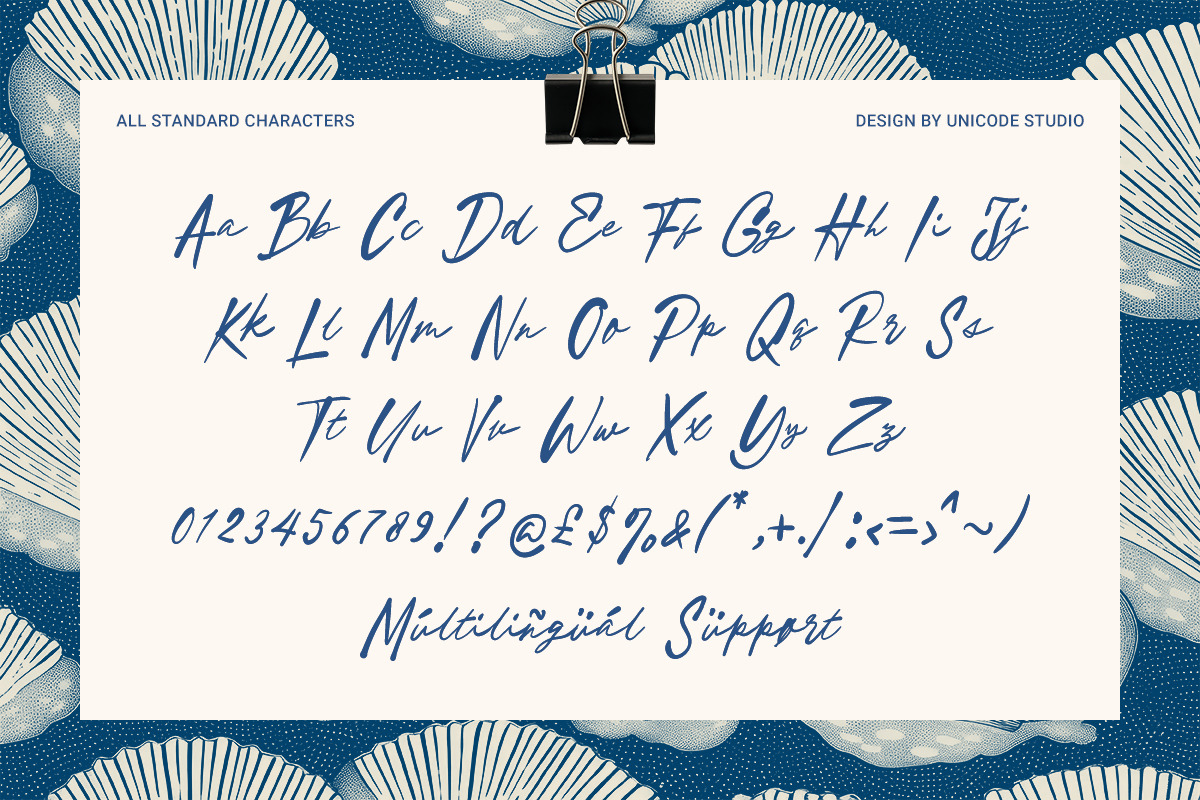 ALL STANDARD CHARACTERS
DESIGN BY UNICODE STUDIO
Aa Bb Cc Dd Ee Ff Gg Hh Ii Jj
Kk Ll Mm Nn Oo Pp Qq Rr Ss
Tt Uu Vv Ww Xx Yy Zz
0123456789!?@£$%&(*,+./:<=>^~)
Múltilíñgüál Süppørt